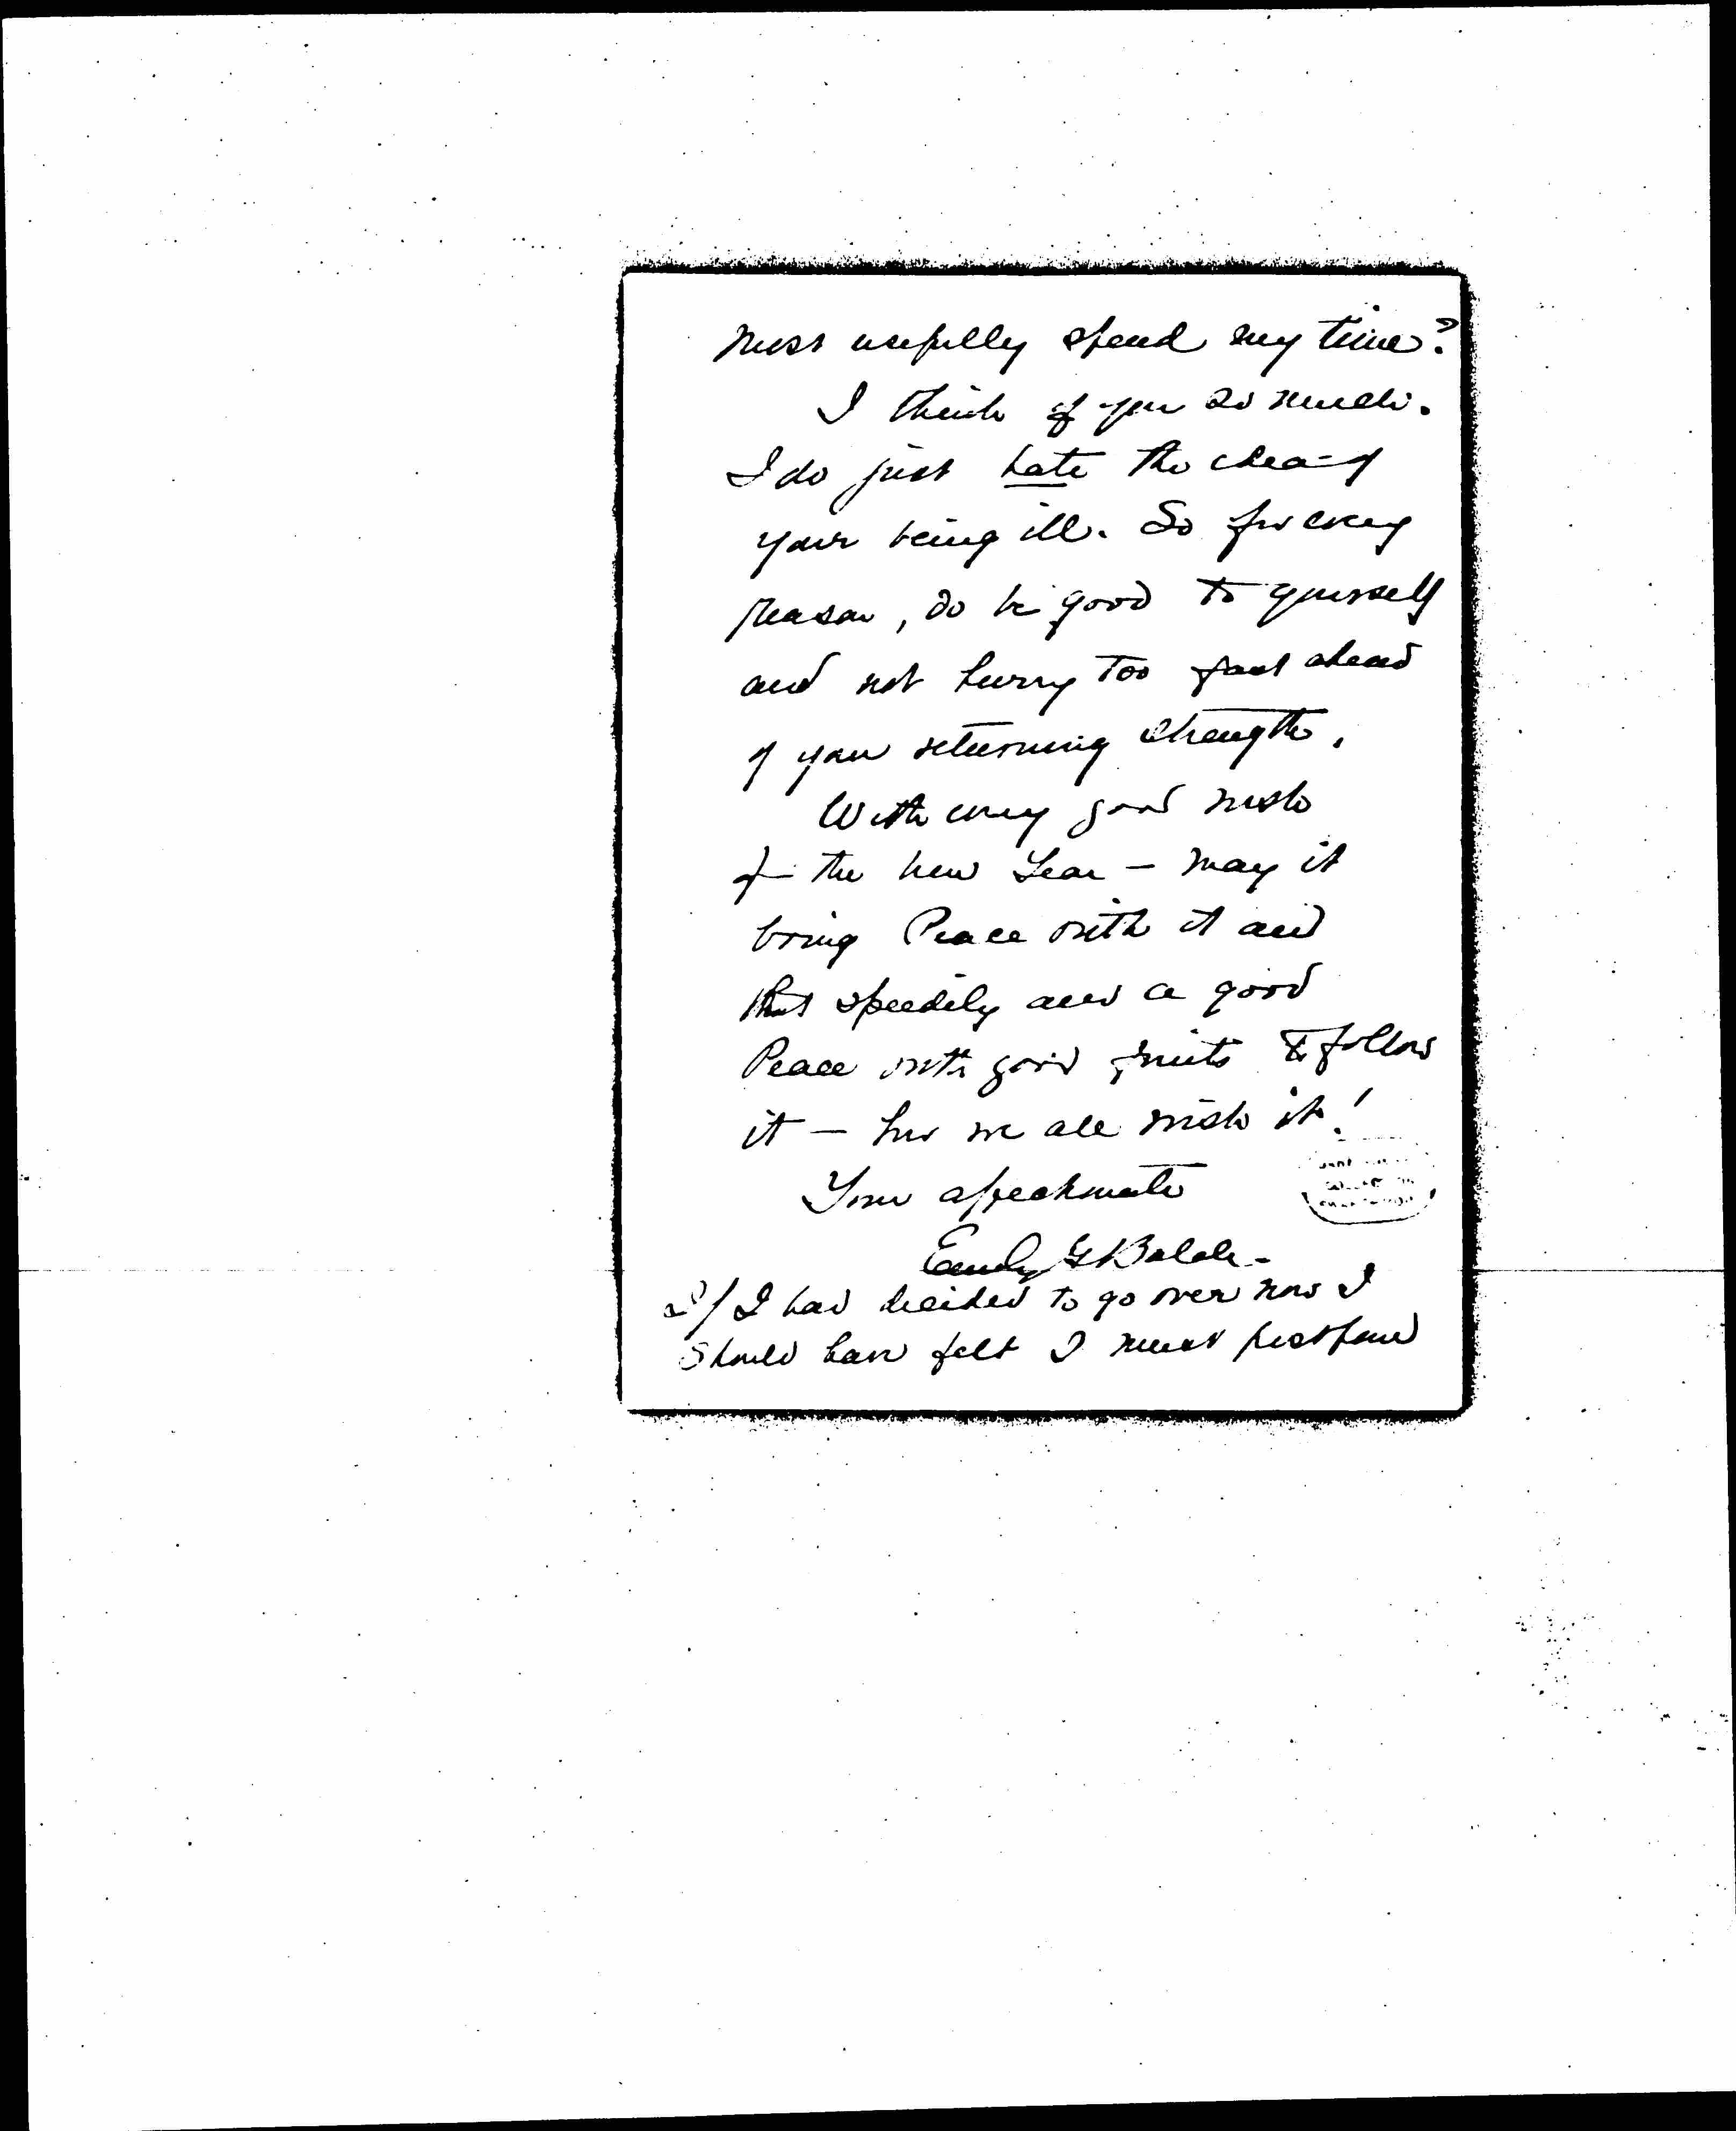 most usefully spend my time?
I think of you so much.
I do just hate the idea of
your being ill. So for every
reason, do be good to yourself
and not hurry too fast ahead
of your returning strength.
With every good wish
for the new Year – may it
bring Peace with it and
that speedily and a good
Peace with good fruits to follow
it – how we all wish it!
Your affectionate
Emily G Balch –
If I had decided to go over now I
should have felt I must postpone